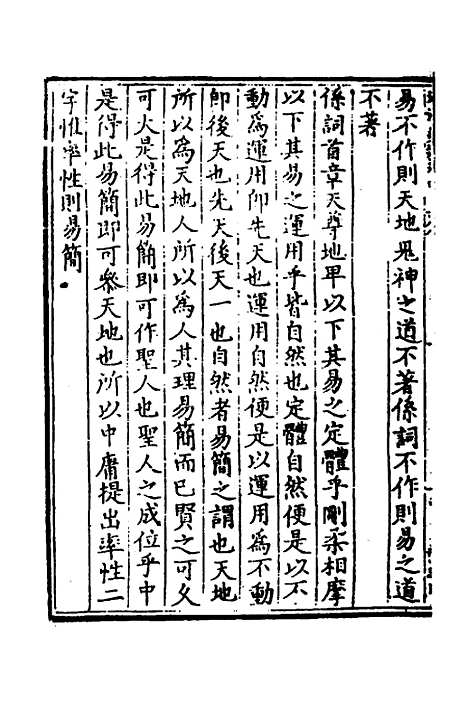 易不作則天地鬼神之道不著係詞不作則易之道
不著
係詞首章天尊地卑以下其易之定體乎剛柔相摩
以下其易之運用乎皆自然也定體自然便是以不
動為運用卽先天也運用自然便是以運用為不動
卽後天也先天後天一也自然者易簡之謂也天地
所以為天地人所以為人其理易簡而已賢之可久
可大是得此易簡即可作聖人也聖人之成位乎中
是得此易簡即可參天地也所以中庸提出率性二
字惟率性則易簡